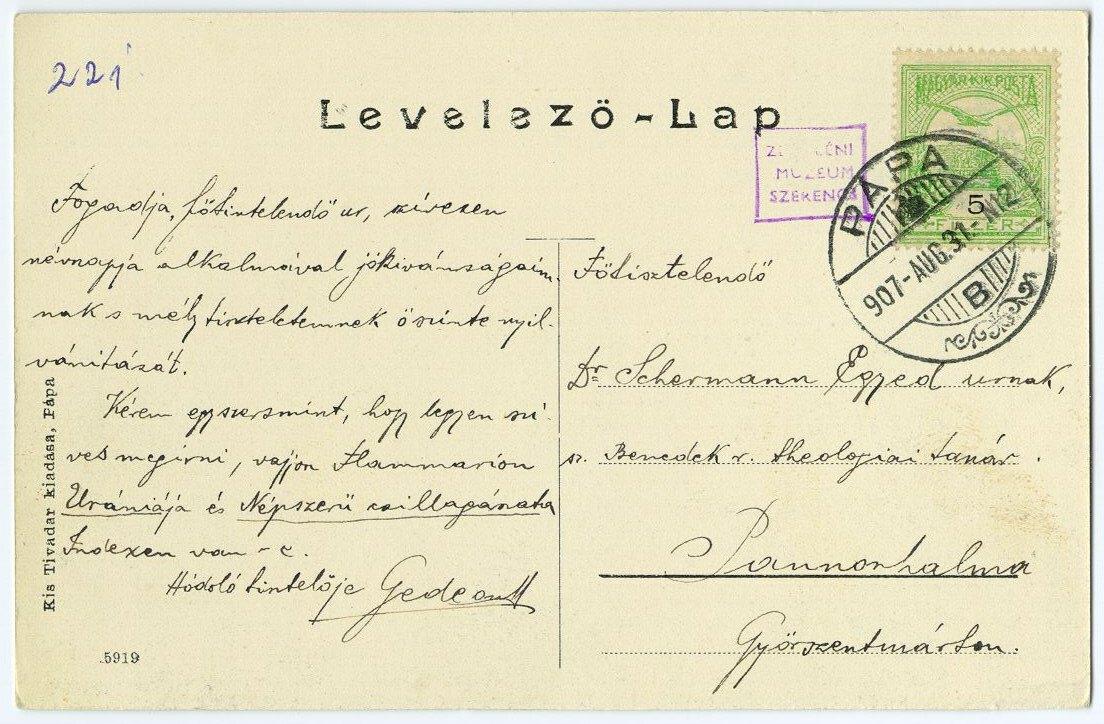 221
Levelező-Lap
MAGYAR KIR. POSTA
5
FILLÉR
ZEMPLÉNI
MUZEUM
SZERENCS
PÁPA
907-AUG.31-N12
B
Fogadja, főtisztelendő ur, szívesen
névnapja alkalmával jókivánságaim-
nak s mély tiszteletemnek őszinte nyil-
vánitását.
Kérem egyszersmint, hogy legyen szi-
ves megirni, vajjon Flammarion
Urániája és Népszerű csillagászata
Indexen van-e.
Hódoló tisztelője Gedeon
Főtisztelendő
Dr. Schermann Egyed urnak,
sz. Benedek r. theologiai tanár.
Pannonhalma
Győrszentmárton.
Kis Tivadar kiadása, Pápa
5919